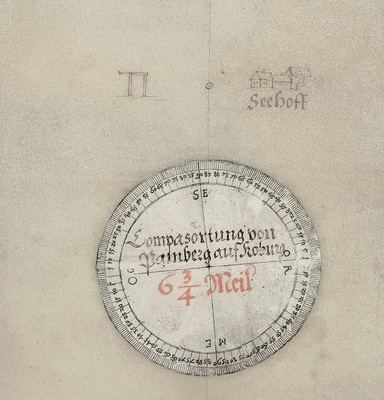 Seehoff
SE
Compasortung von
Bamberg auf Koburg
6 3/4 Meil
OC
OR
ME